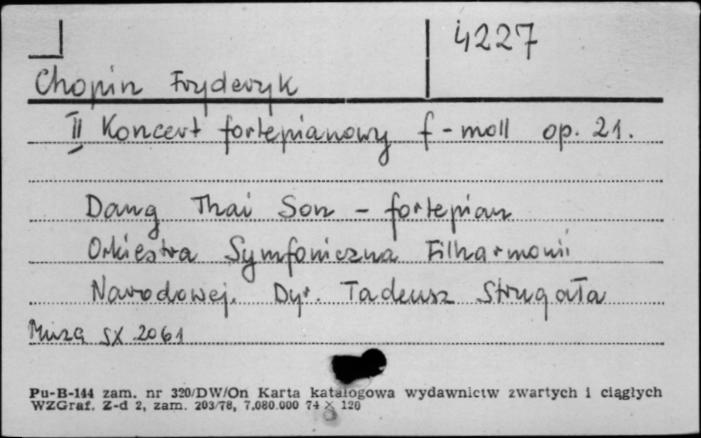 4227
Chopin Fryderyk
II Koncert fortepianowy f-moll op. 21.
Dang Thai Son - fortepian
Orkiestra Symfoniczna Filharmonii
Narodowej. Dyr. Tadeusz Strugała
Muza SX 2061
Pu-B-144 zam. nr 320/DW/On Karta katalogowa wydawnictw zwartych i ciągłych
WZGraf. Z-d 2, zam. 203/78, 7.080.000 74 × 120